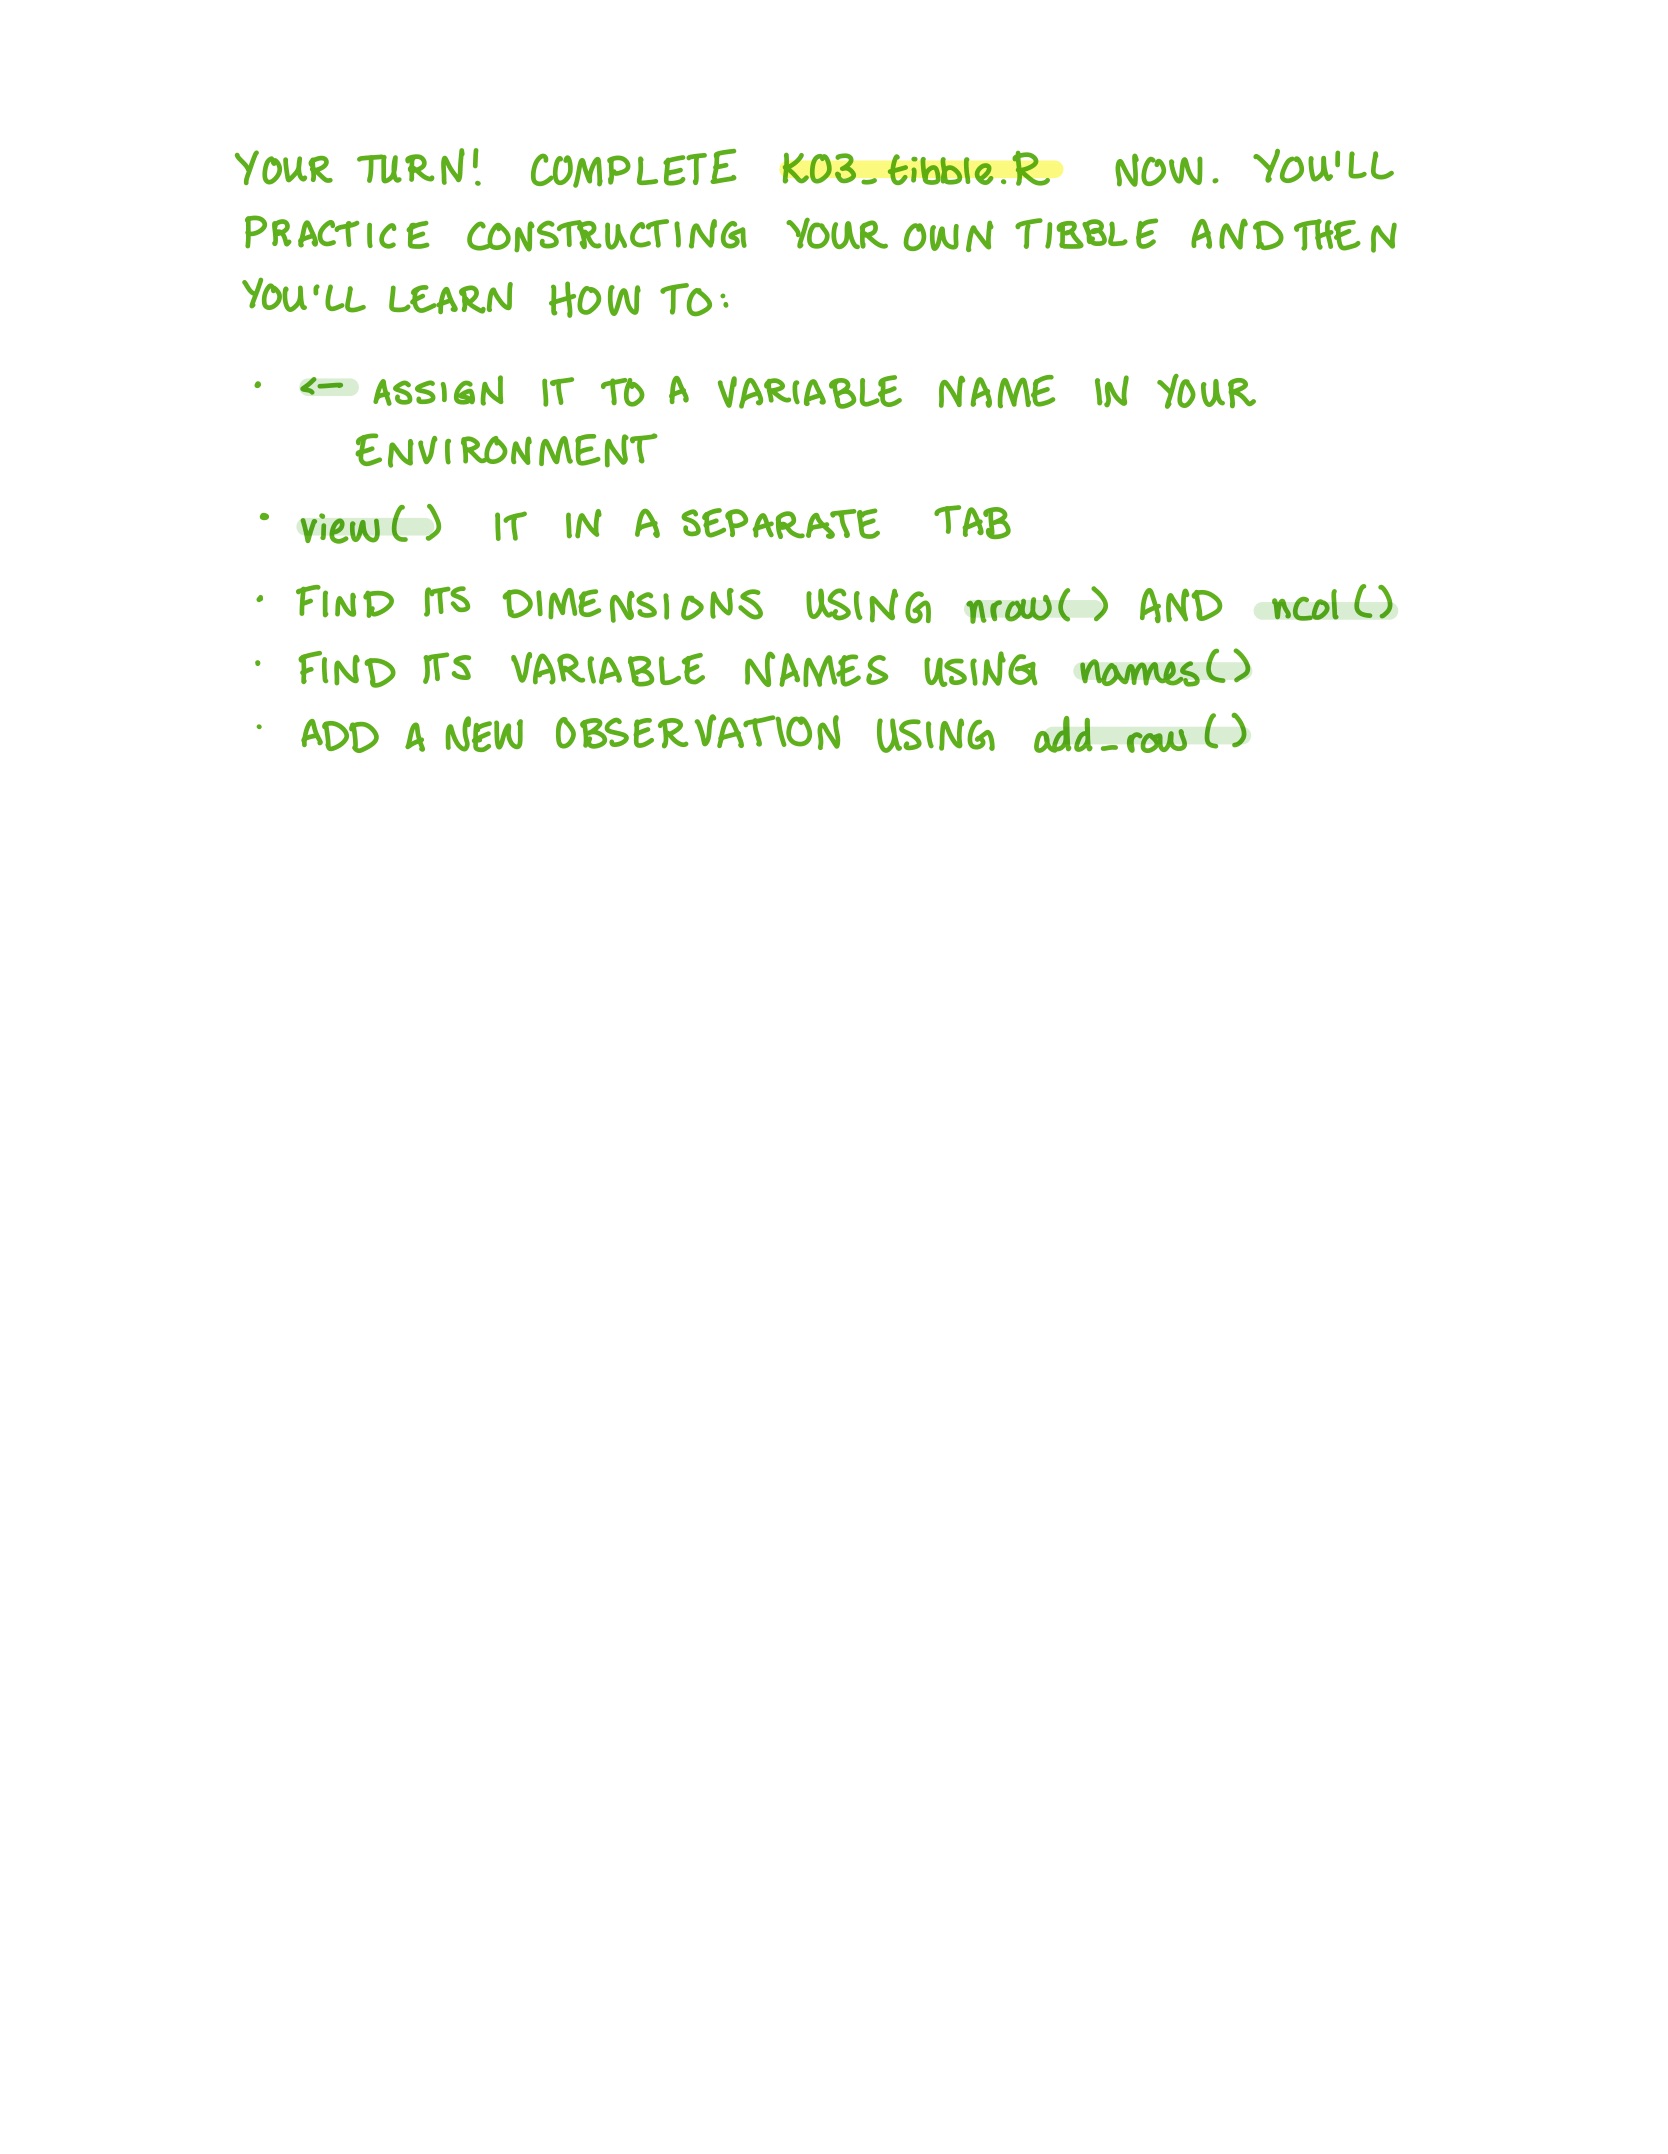 YOUR TURN! COMPLETE K03_tibble.R NOW. YOU'LL
PRACTICE CONSTRUCTING YOUR OWN TIBBLE AND THEN
YOU'LL LEARN HOW TO:
• <- ASSIGN IT TO A VARIABLE NAME IN YOUR
ENVIRONMENT
• view() IT IN A SEPARATE TAB
• FIND ITS DIMENSIONS USING nrow() AND ncol()
• FIND ITS VARIABLE NAMES USING names()
• ADD A NEW OBSERVATION USING add_row()